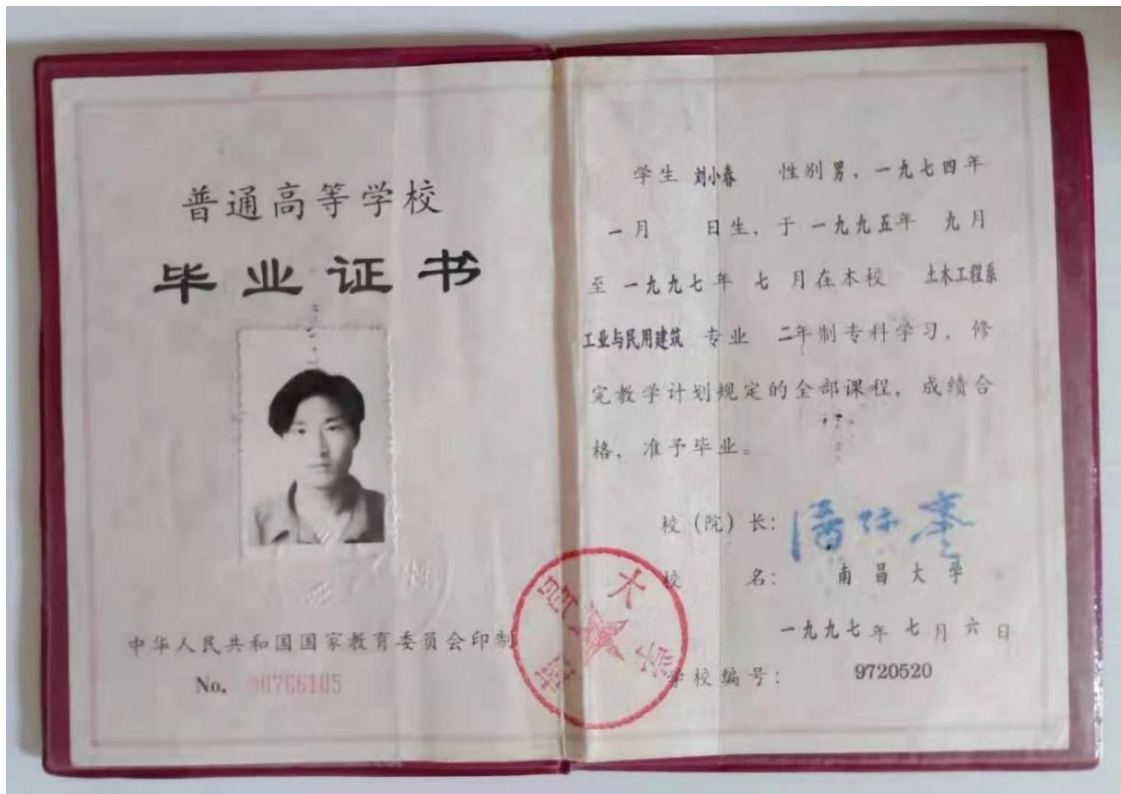 普通高等学校
毕业证书
中华人民共和国国家教育委员会印制
No. 90766105
学生 刘小春 性别男、一九七四年
一月 日生、于一九九五年 九月
至 一九九七年 七 月在本校 土木工程系
工业与民用建筑 专业 二年制专科学习，修
完教学计划规定的全部课程，成绩合
格，准予毕业。
校（院）长：潘际銮
校 名：南昌大学
一九九七年七月六日
学校编号：9720520
南昌大学